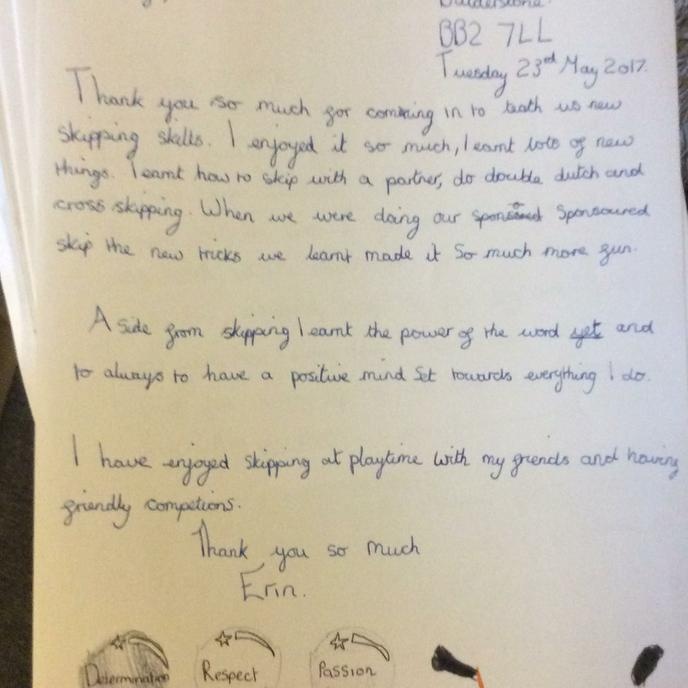 Balderstone.
BB2 7LL
Tuesday 23rd May 2017.
Thank you so much for coming in to teath us new
skipping skills. I enjoyed it so much, I earnt lots of new
things. I earnt how to skip with a partner, do double dutch and
cross skipping. When we were doing our sponsored Sponsoured
skip the new tricks we learnt made it So much more fun.
A side from skipping I earnt the power of the word yet and
to always to have a positive mind Set towards everything I do.
I have enjoyed skipping at playtime with my friends and having
friendly competions.
Thank you so much
Erin.
Determination
Respect
Passion